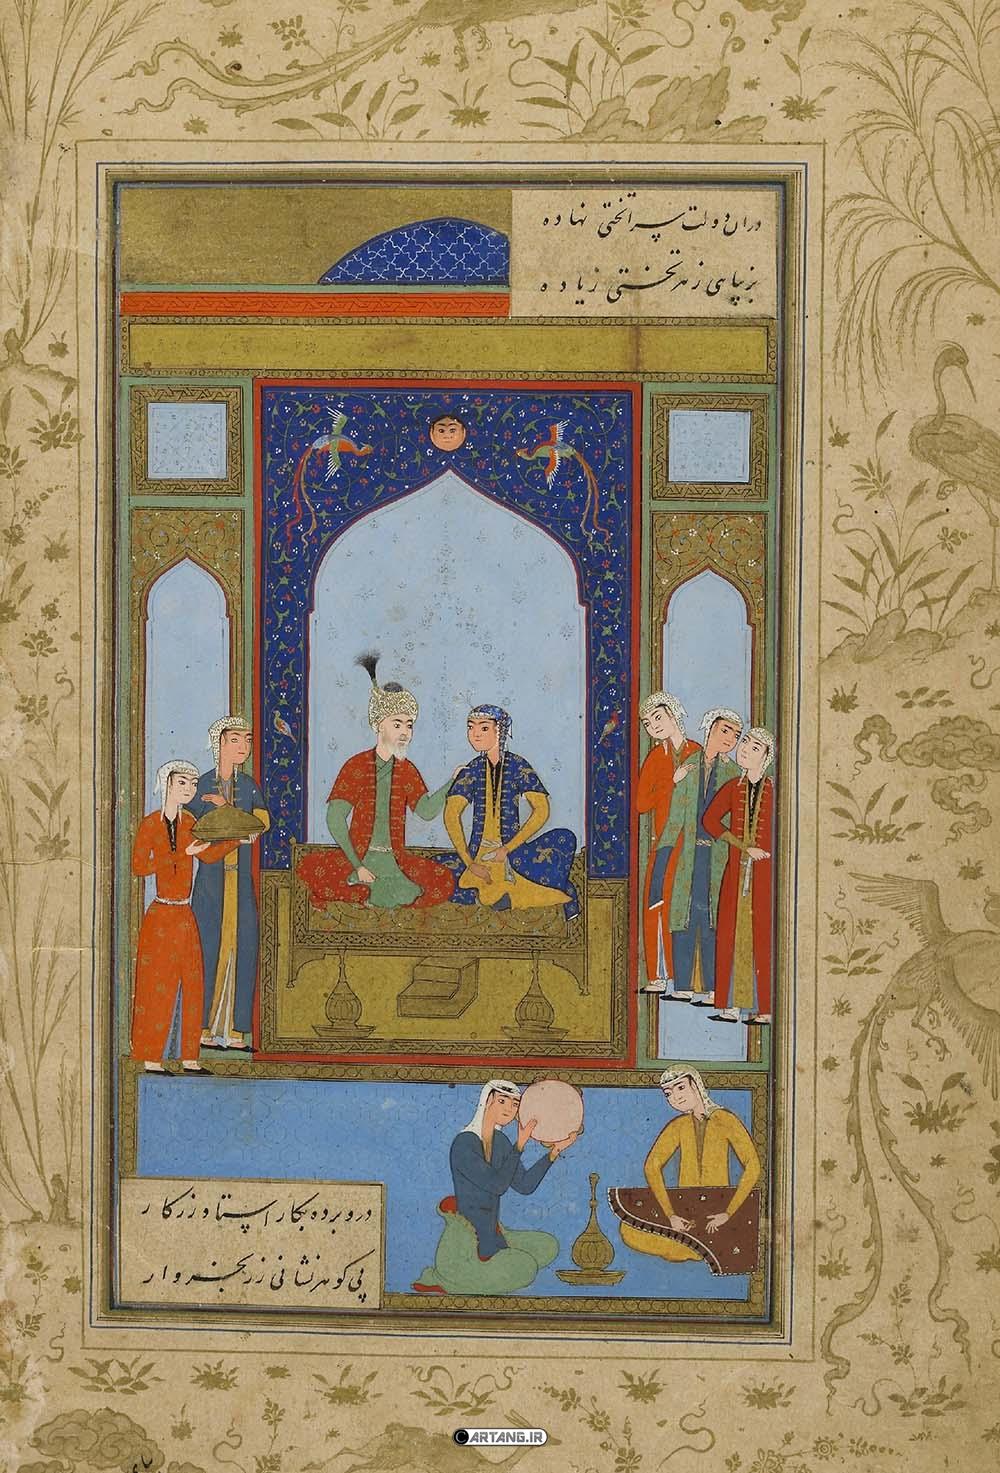 دران دولت سرا تختی نهاده
ز هر تختی زیاده
درو برده بکار استاد زرکار
پی گوهر نشانی زر بخروار
CARTANG.IR